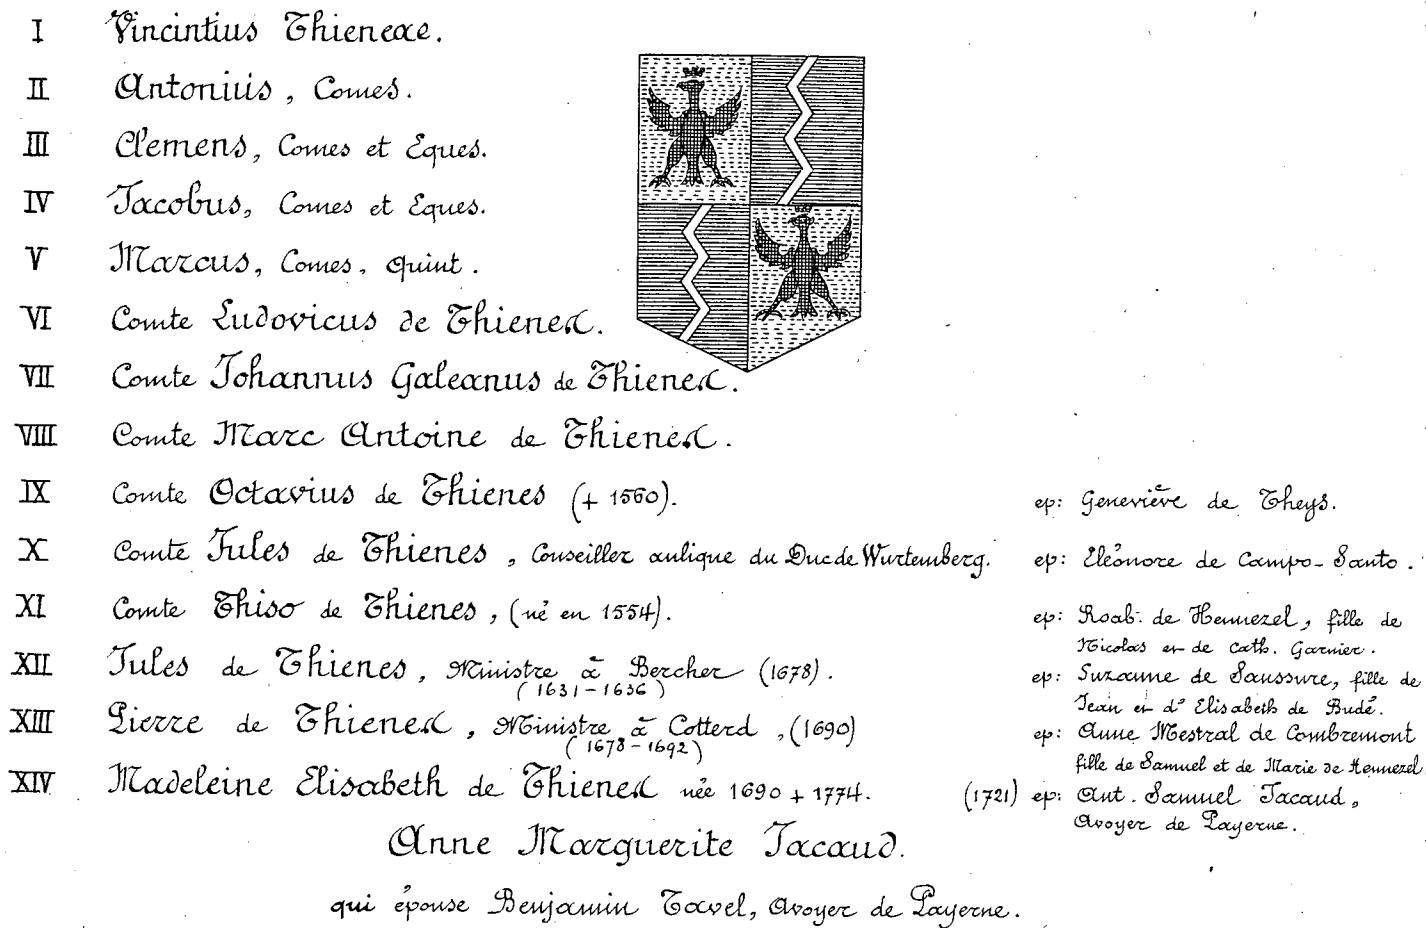 I Vincintius Thieneae.
II Antoniüs, Comes.
III Clemens, Comes et Eques.
IV Jacobus, Comes et Eques.
V Marcus, Comes, Quint.
VI Comte Ludovicus de Thienes.
VII Comte Johannus Galeanus de Thienes.
VIII Comte Marc Antoine de Thienes.
IX Comte Octavius de Thienes (+ 1560). ep: Geneviève de Theys.
X Comte Jules de Thienes, Conseiller aulique du Duc de Wurtemberg. ep: Eléonore de Campo-Santo.
XI Comte Thiso de Thienes, (né en 1554). ep: Roab. de Hennezel, fille de
Nicolas et de Cath. Garnier.
XII Jules de Thienes, Ministre à Bercher (1678). ep: Suzanne de Saussure, fille de
(1631-1636) Jean et d' Elisabeth de Budé.
XIII Pierre de Thienes, Ministre à Cotterd, (1690) ep: Anne Mestral de Combremont
(1678-1692) fille de Samuel et de Marie de Hennezel
XIV Madeleine Elisabeth de Thienes née 1690 + 1774. (1721) ep: Ant. Samuel Jacaud,
Avoyer de Payerne.
Anne Marguerite Jacaud.
qui épouse Benjamin Tavel, Avoyer de Payerne.